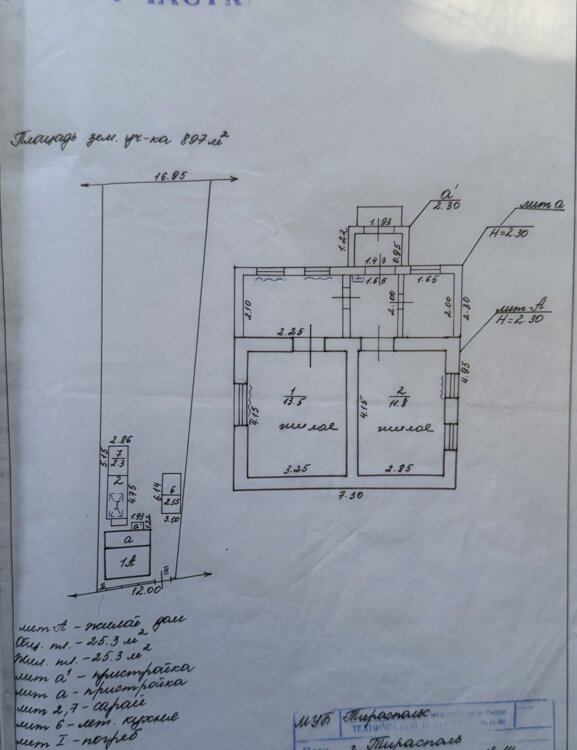 УЧАСТКА
Площадь зем. уч-ка 897 м²
16.95
а'
2.30
лит а
Н=2.30
1.93
1.22
0.95
1.43
1.65
1.65
2.10
2.00
2.00
2.30
лит А
Н=2.30
2.25
4.95
1
13.5
жилое
2
11.8
жилое
4.15
4.15
3.25
2.85
7.30
2.86
5.15
7
2.3
2
I
4.75
6.14
6
2.55
3.00
1.93
а'
1.22
а
1А
12.00
лит А - жилой дом
Общ. пл. - 25.3 м²
Жил. пл. - 25.3 м²
лит а' - пристройка
лит а - пристройка
лит 2,7 - сарай
лит 6 - лет. кухня
лит I - погреб
МУП Тирасполь
г. Тирасполь